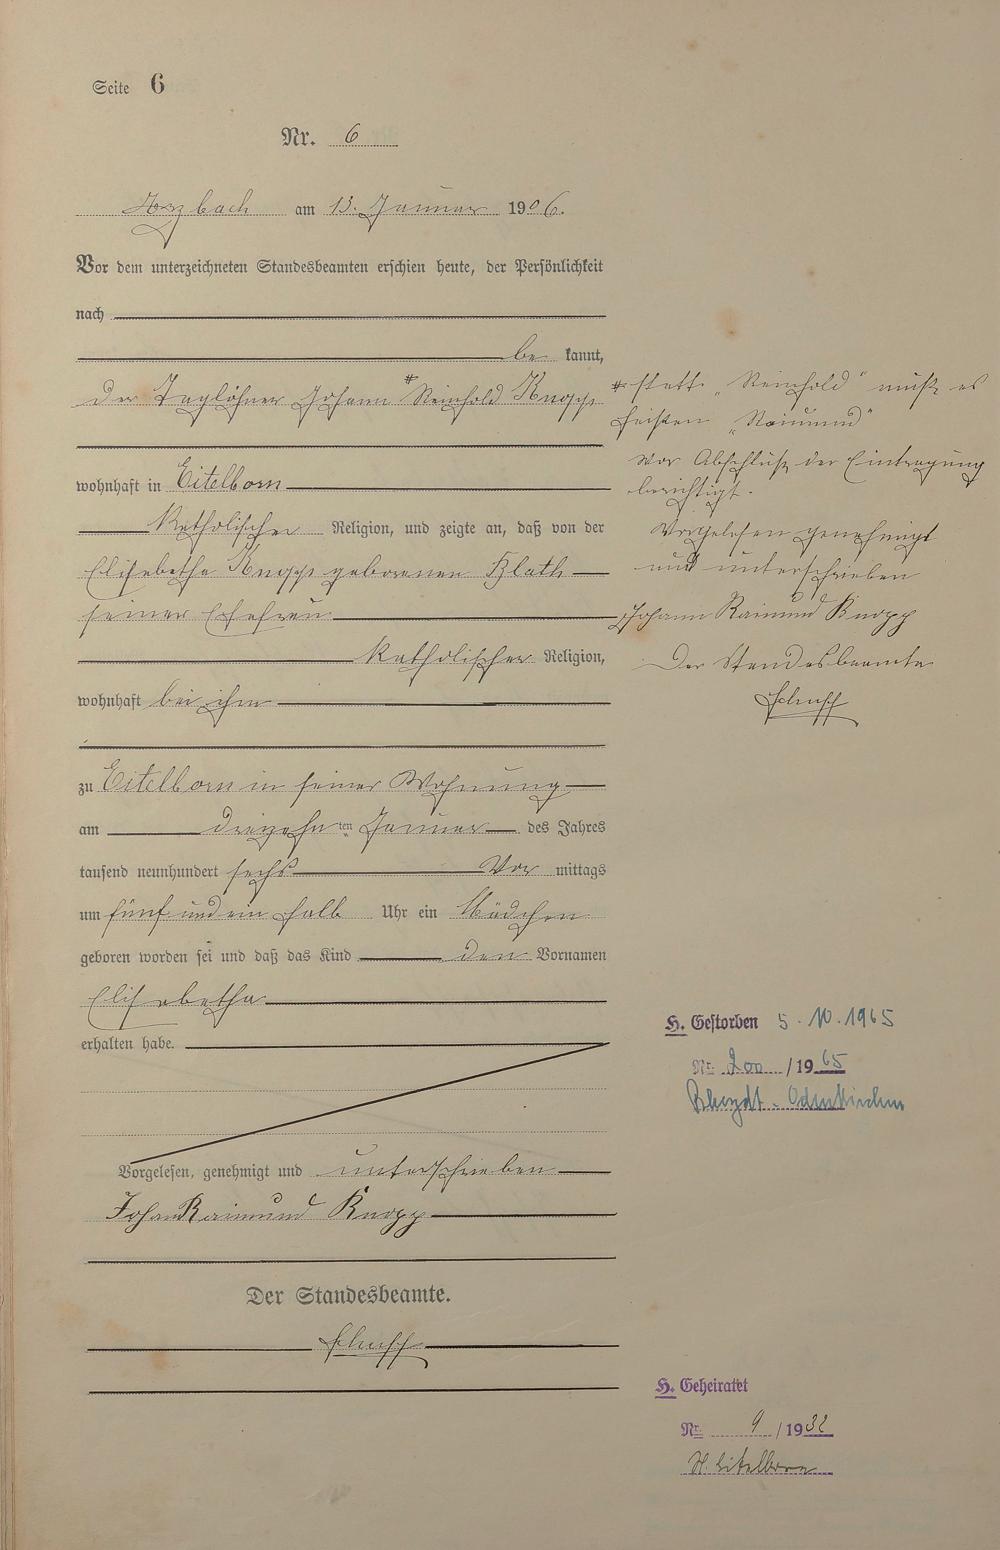 Seite 6
Nr. 6
Arzbach am 13. Januar 1906.
Vor dem unterzeichneten Standesbeamten erschien heute, der Persönlichkeit
nach
be kannt,
der Taglöhner Johann # Reinhold Knopp
wohnhaft in Eitelborn
katholischer Religion, und zeigte an, daß von der
Elisabetha Knopp geborenen Blath
seiner Ehefrau
katholischer Religion,
wohnhaft bei ihm
zu Eitelborn in seiner Wohnung
am dreizehn ten Januar des Jahres
tausend neunhundert sechs Vor mittags
um fünf und ein halb Uhr ein Mädchen
geboren worden sei und daß das Kind den Vornamen
Elisabetha
erhalten habe.
Vorgelesen, genehmigt und unterschrieben
Johan Raimund Knopp
Der Standesbeamte.
# statt "Reinhold" muß es
heißen "Raimund"
Vor Abschluß der Eintragung
berichtigt.
Vorgelesen genehmigt
und unterschrieben
Johann Raimund Knopp
Der Standesbeamte
H. Gestorben 5.10.1965
Nr. 200 /1965
Rheydt-Odenkirchen
H. Geheiratet
Nr. 9 /1932
St. Eitelborn